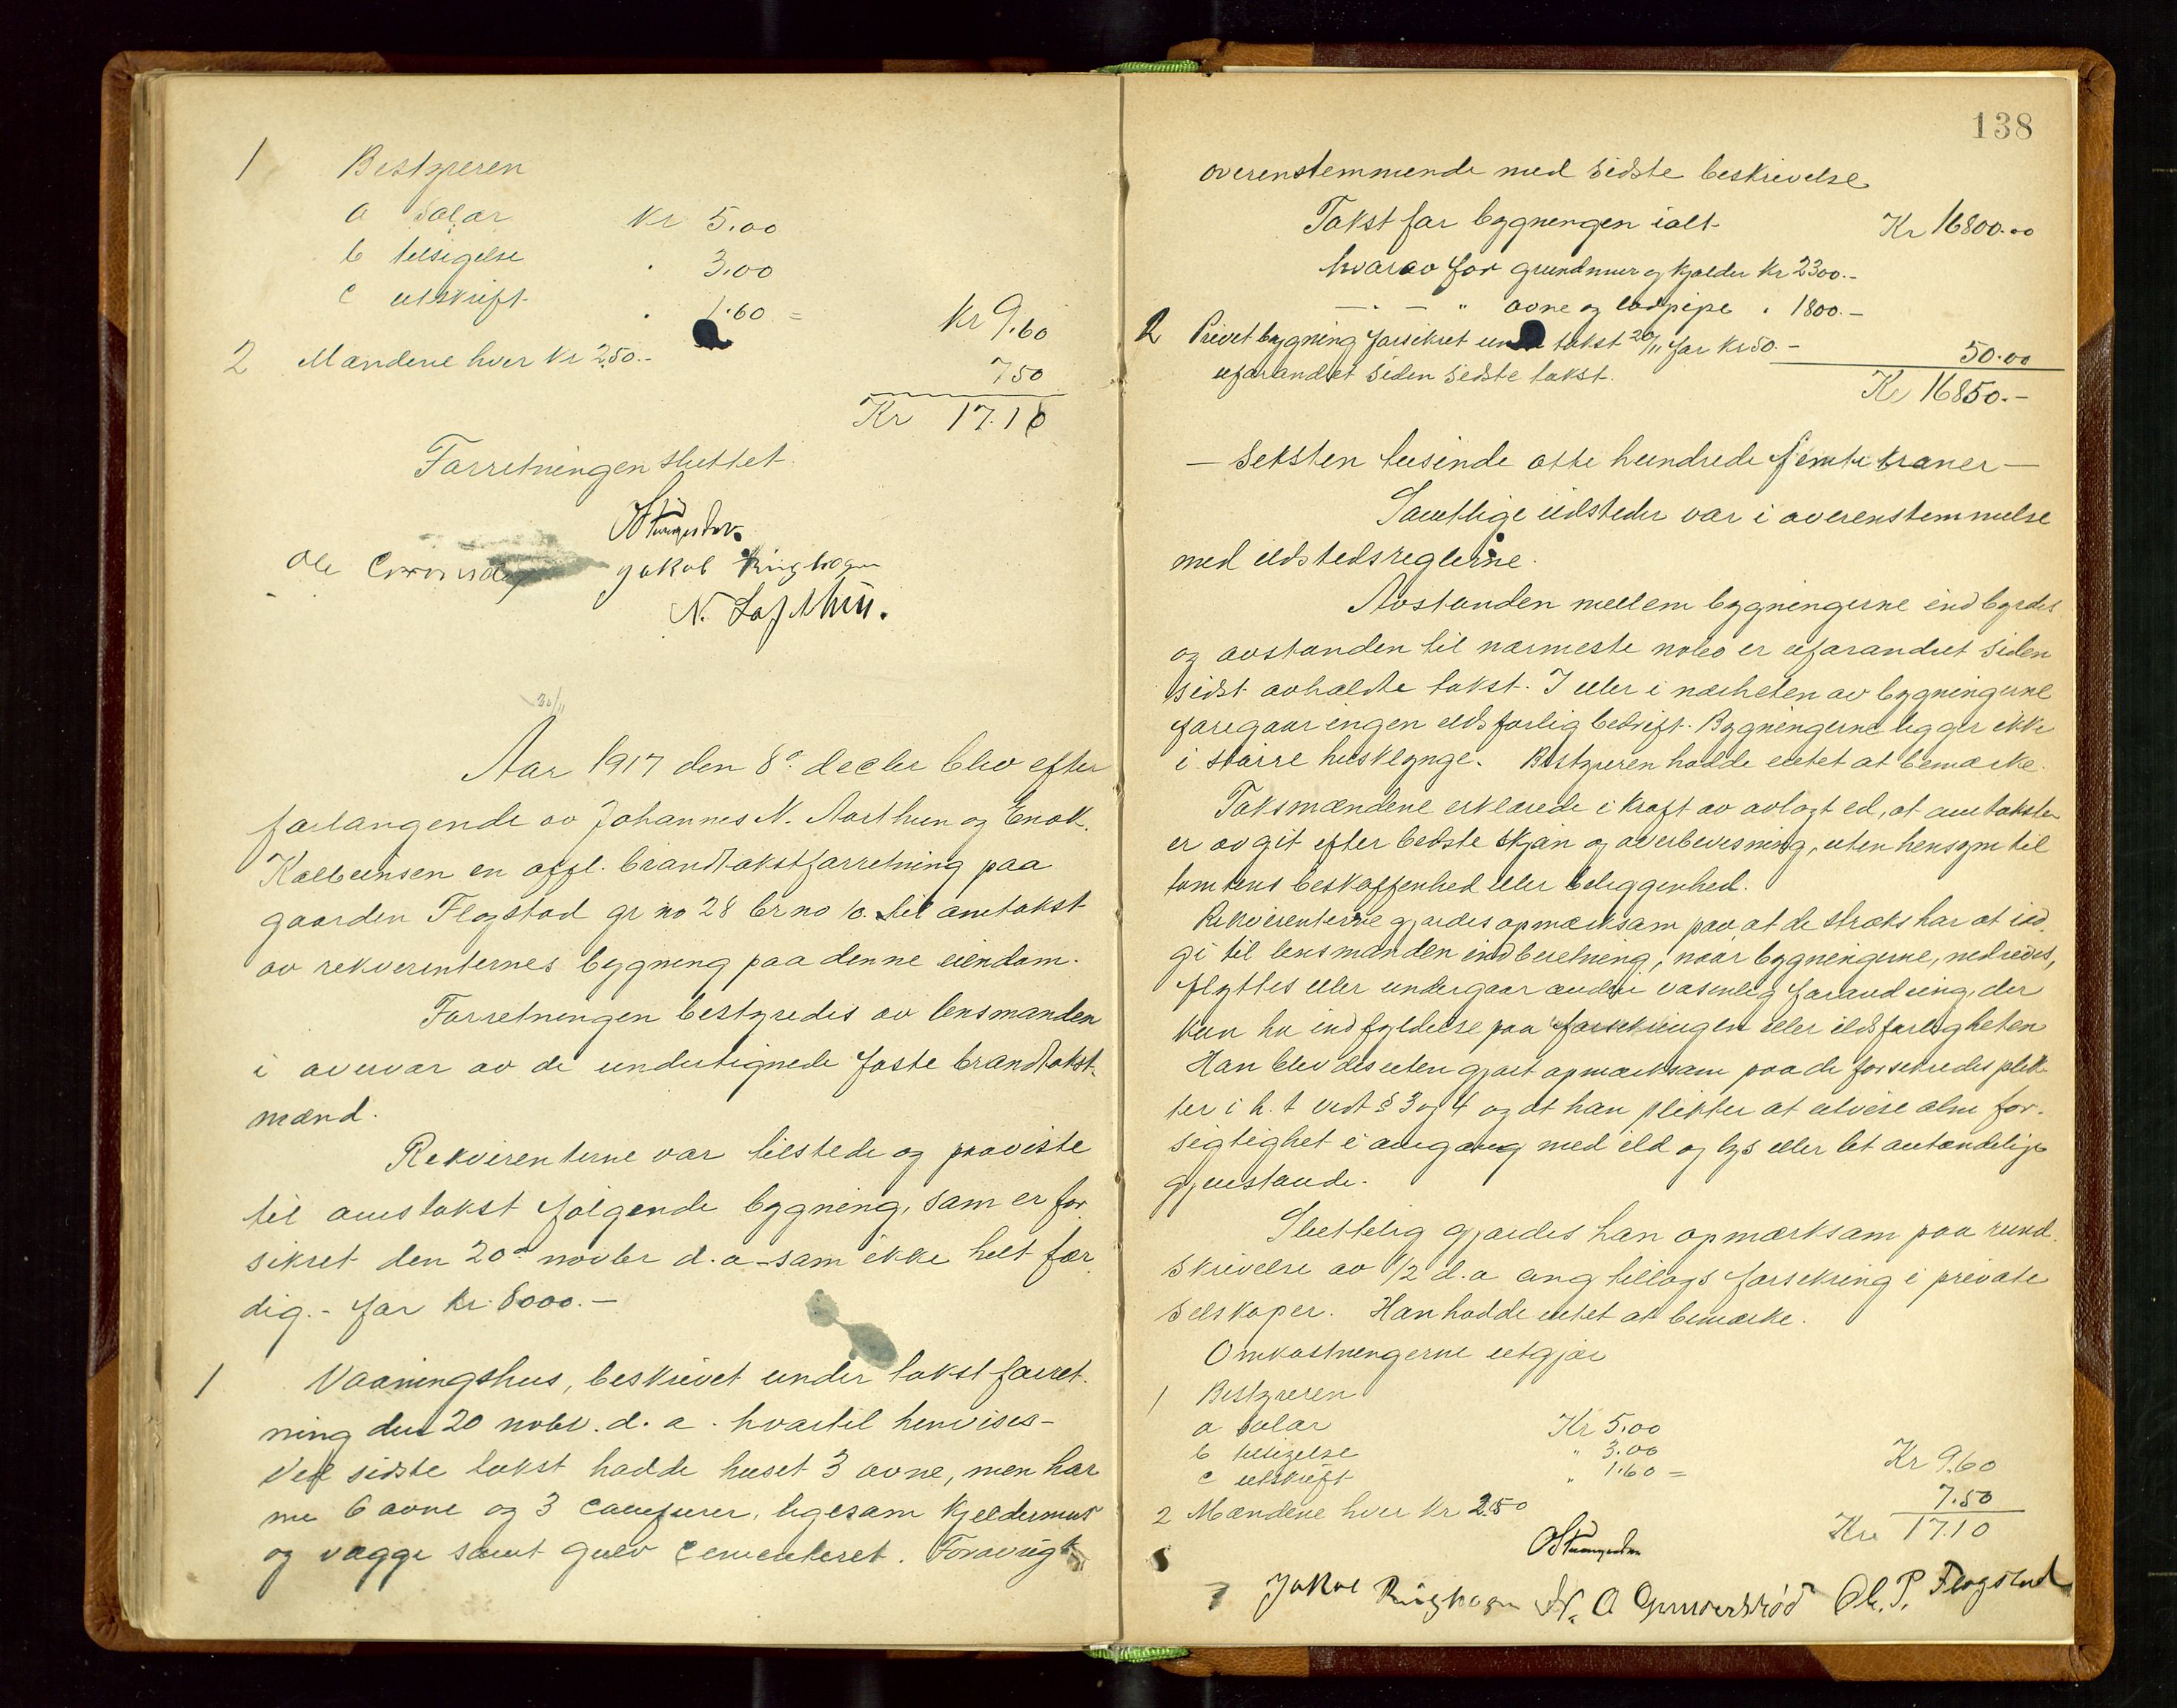 1 Bestyreren
a salar Kr 5.00
b tilsigelse " 3.00
c utskrift " 1.60 = Kr 9.60
2 Mændene hver Kr 2.50.- 7 50
Kr 17.10
Forretningen sluttet
Jakob Ringhagen
N. Lofthus.
30/11
Aar 1917 den 8de decbr blev efter
forlangende av Johannes N. Aarthun og Enok
Kolbeinsen en offl. brandtakstforretning paa
gaarden Flogstad gr no 28 br no 10 til omtakst
av rekvirenternes bygning paa denne eiendom.
Forretningen bestyredes av lensmanden
i overvær av de undertignede faste brandtakst-
mænd.
Rekvirenterne var tilstede og paaviste
til omtakst følgende bygning, som er for
sikret den 20de novbr d.a. som ikke helt fær
dig.- for kr. 8000.-
1 Vaaningshus, beskrevet under takstforret.
ning den 20 nobr. d. a. hvortil henvises-
Ved sidste takst hadde huset 3 ovne, men har
nu 6 ovne og 3 comfurer, ligesom kjeldermur
og vægge samt gulv cementeret. Forøvrigt
138
overenstemmende med sidste beskrivelse
Takst for bygningen ialt Kr 16800.00
hvorav for grundmur og kjælder Kr 2300.-
— " — " ovne og lodpipe " 1800.-
2 Privetbygning forsikret under takst 20/11 for kr 50.- 50.00
uforandret siden sidste takst. Kr 16850.-
— Seksten tusinde otte hundrede femti kroner —
Samtlige ildsteder var i overenstemmelse
med ildstedsreglerne.
Avstanden mellem bygningerne indbyrdes
og avstanden til nærmeste nabo er uforandret siden
sidst avholdte takst. I eller i nærheten av bygningerne
foregaar ingen ildsfarlig bedrift. Bygningerne ligger ikke
i større husklynge. Bestyreren hadde intet at bemærke.
Taksmændene erklærede i kraft av avlagt ed, at omtaksten
er avgit efter bedste skjøn og overbevisning, uten hensyn til
tomtens beskaffenhed eller beliggenhed.
Rekvirenterne gjordes opmerksam paa at de straks har at ind
gi til lensmanden indberetning, naar bygningerne, nedrives,
flyttes eller undergaar anden væsenlig forandring, der
kan ha indflydelse paa forsikringen eller ildsfarligheten
Han blev desuten gjort opmerksam paa de forsikredes plik
ter i h. t. vedt § 3 og 4 og at han plikter at utvise alm for-
sigtighet i omgang med ild og lys eller let antændelige
gjenstande.
Sluttelig gjordes han opmærksam paa rund
skrivelse av 1/2 d.a ang tillægs forsikring i private
selskaper. Han hadde intet at bemærke.
Omkostningerne utgjør
1 Bestyreren
a salar Kr 5.00
b tilsigelse " 3.00
c utskrift " 1.60 = Kr 9.60
2 Mændene hver kr 2.50 7.50
Kr 17.10
Jakob Ringhagen N. A Gunnerskød Ol. P. Flogstad